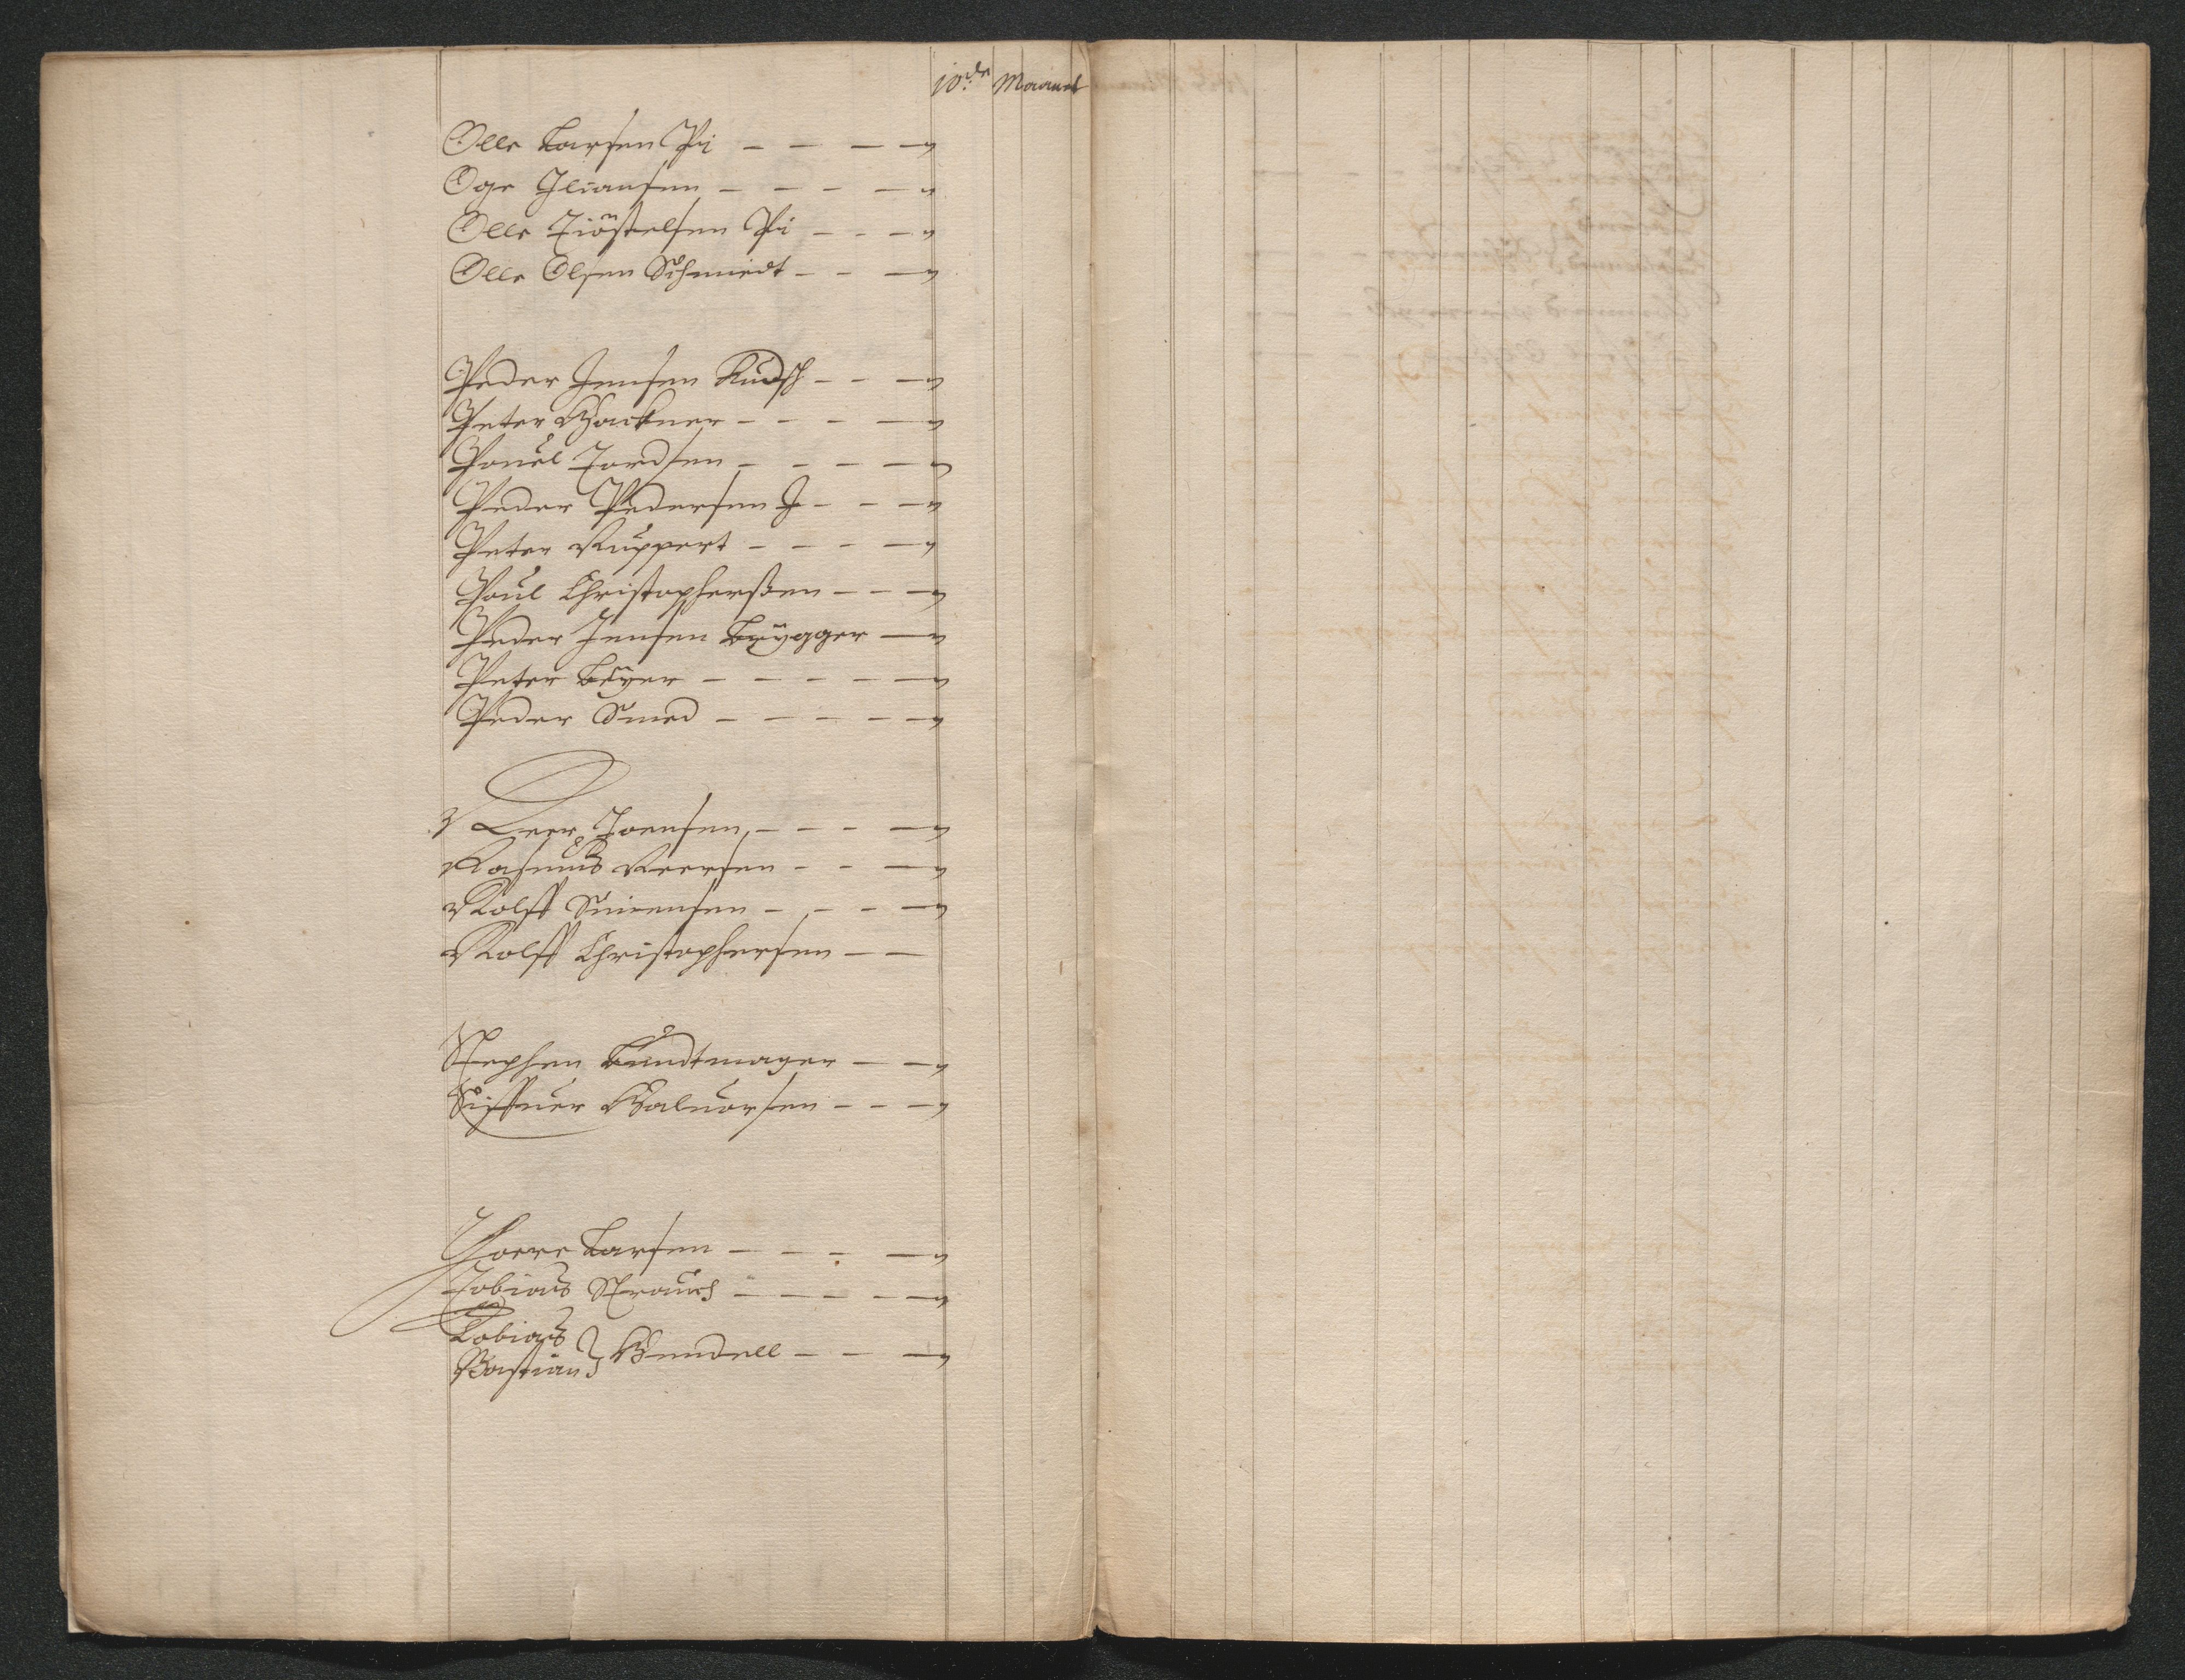 10de Maanet
Olle Larsen Pi - - - -
Oge Iliansen - - - -
Olle Kiöstelsen Pi - - -
Olle Olsen Schmiedt - - -
Peder Jensen Kudsk - - -
Peter Hackner - - - -
Pouel Tordsen - - - -
Peder Pedersen J - - -
Peter Ruppert - - - -
Poul Christopherßen - - -
Peder Jensen Brÿgger -
Peter Beÿer - - - - -
Peder Smed - - - - -
Reer Joensen, - - - -
Rasmus Reersen - - -
Rolff Suiensen - - - -
Rolff Christophersen - -
Stephen Bundtmager - -
Siffuer Haluorsen - - -
Thorre Larsen - - - -
Tobias Strauch - - - - -
Tobias
Bastian } Bendell - - -